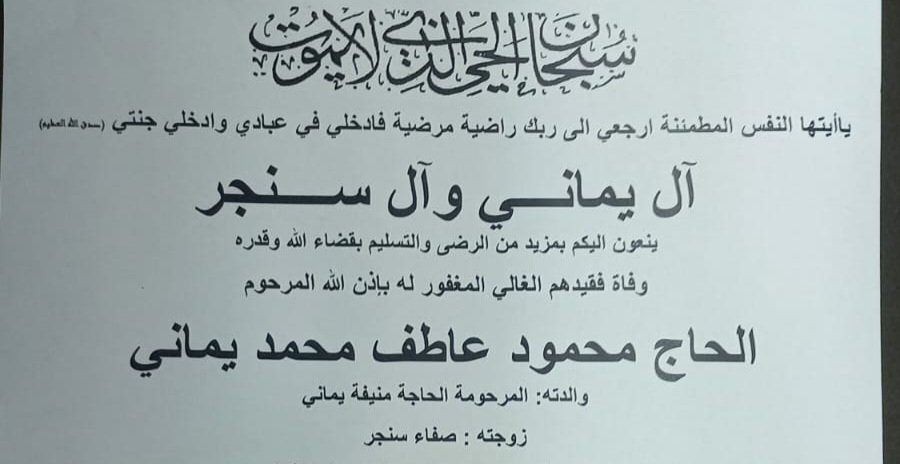 سبحان الحي الذي لا يموت
ياأيتها النفس المطمئنة ارجعي الى ربك راضية مرضية فادخلي في عبادي وادخلي جنتي (صدق الله العظيم)
آل يماني وآل سنجر
ينعون اليكم بمزيد من الرضى والتسليم بقضاء الله وقدره
وفاة فقيدهم الغالي المغفور له بإذن الله المرحوم
الحاج محمود عاطف محمد يماني
والدته: المرحومة الحاجة منيفة يماني
زوجته : صفاء سنجر